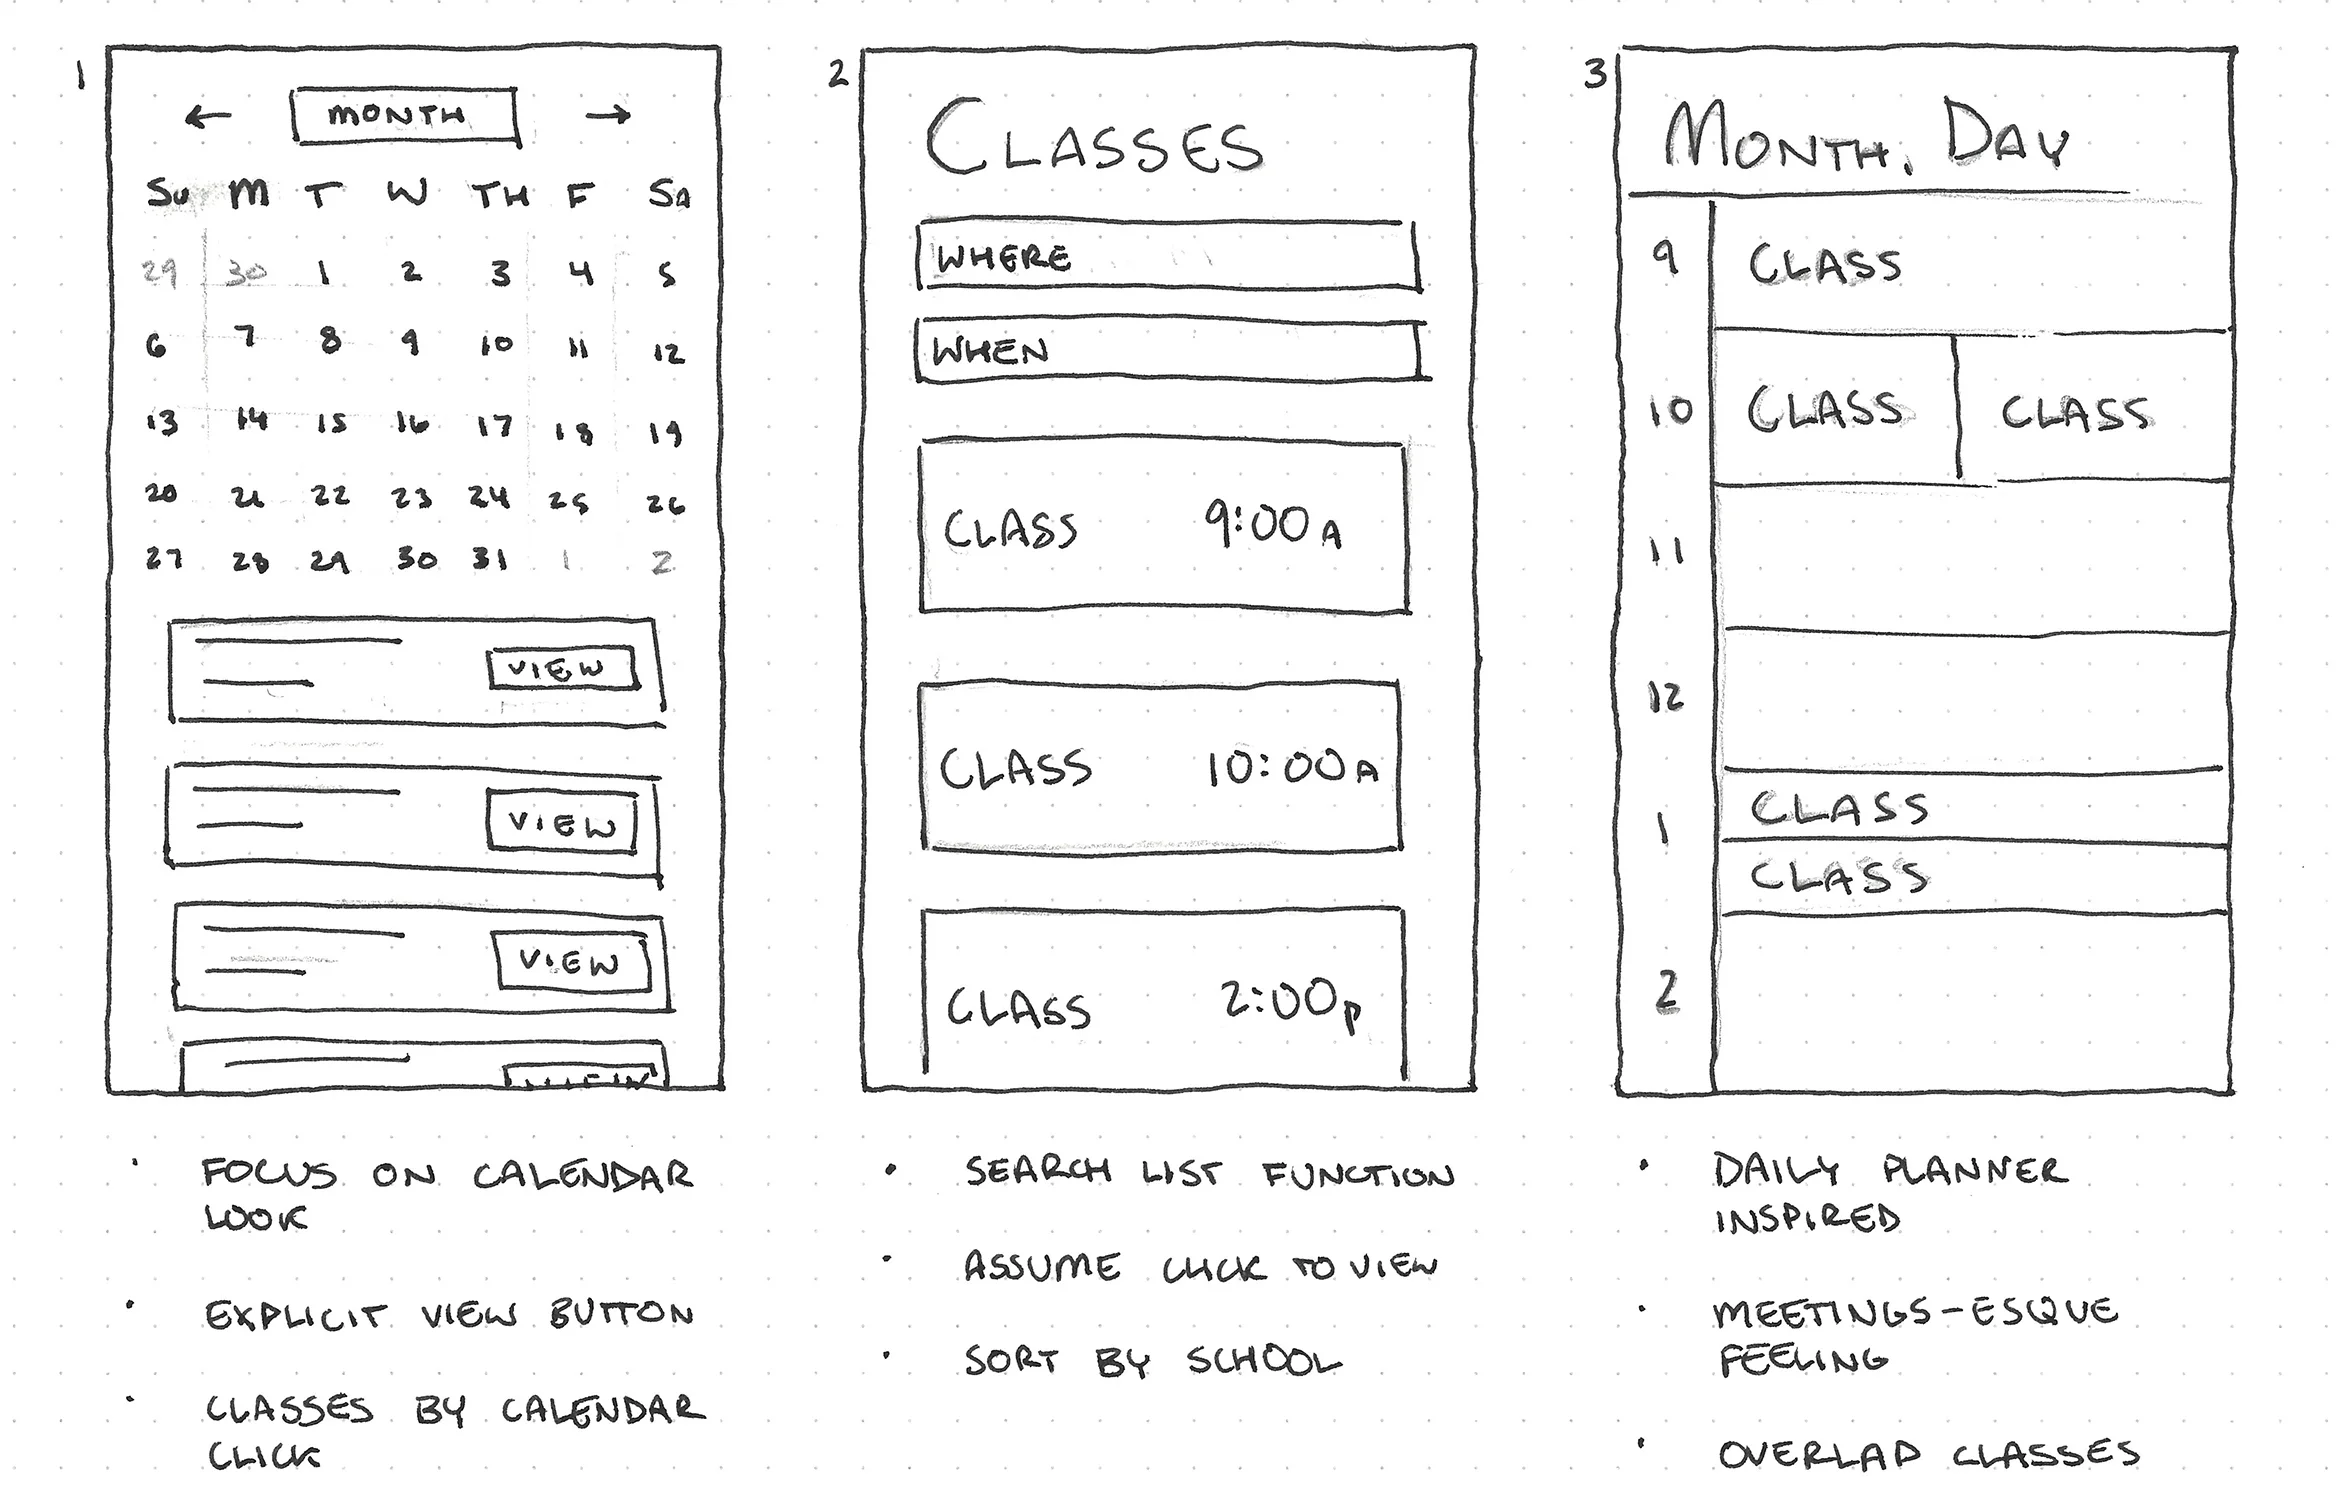 1
← MONTH →
SU M T W TH F SA
29 30 1 2 3 4 5
6 7 8 9 10 11 12
13 14 15 16 17 18 19
20 21 22 23 24 25 26
27 28 29 30 31 1 2
VIEW
VIEW
VIEW
VIEW
• FOCUS ON CALENDAR
LOOK
• EXPLICIT VIEW BUTTON
• CLASSES BY CALENDAR
CLICK
2
CLASSES
WHERE
WHEN
CLASS 9:00A
CLASS 10:00A
CLASS 2:00P
• SEARCH LIST FUNCTION
• ASSUME CLICK TO VIEW
• SORT BY SCHOOL
3
MONTH, DAY
9 CLASS
10 CLASS CLASS
11
12
1 CLASS
CLASS
2
• DAILY PLANNER
INSPIRED
• MEETINGS-ESQUE
FEELING
• OVERLAP CLASSES